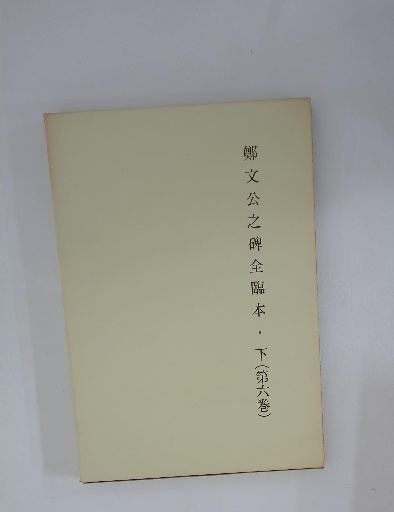 鄭文公之碑全臨本・下(第六巻)